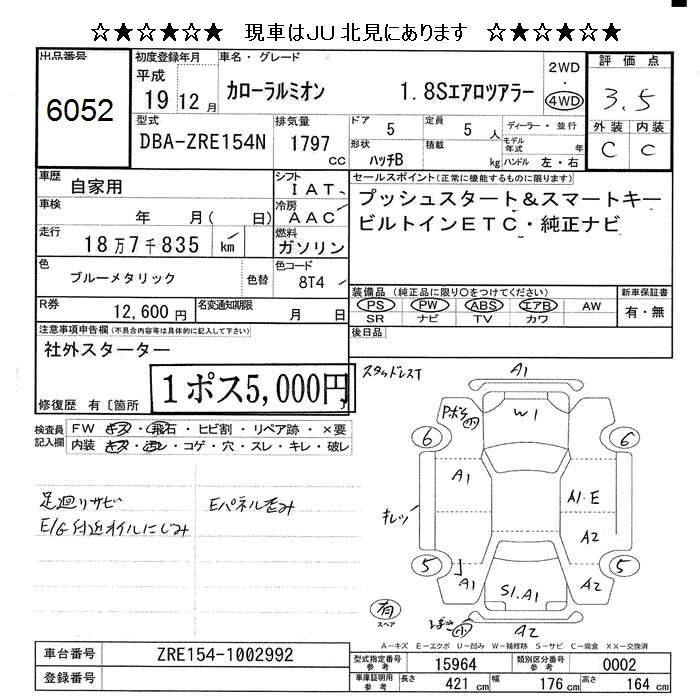 ☆★☆★☆★☆ 現車はJU北見にあります ☆★☆★☆★☆
出品番号
6052
初度登録年月
平成
19 12 月
車名・グレード
カローラルミオン 1.8Sエアロツアラー
2WD
・
4WD
評価点
3.5
外装 内装
C C
型式
DBA-ZRE154N
排気量
1797
CC
ドア 5
定員 5 人
形状 ハッチB
積載 kg
ディーラー・並行
モデル年式 年
ハンドル 左・右
車歴
自家用
シフト
IAT
車検
年 月( 日)
冷房
AAC
走行
18万7千835 km
燃料
ガソリン
色
ブルーメタリック
色替
色コード
8T4
R券
12,600円
名変通知期限
月 日
セールスポイント(正常に機能するものに限ります)
プッシュスタート&スマートキー
ビルトインETC・純正ナビ
装備品(純正品に限り○をつけてください)
PS PW ABS エアB AW
SR ナビ TV カワ
新車保証書
有・無
後日品
注意事項申告欄(不具合内容等は具体的に記入して下さい)
社外スターター
1ポス5,000円
修復歴 有〔箇所
検査員
記入欄
FW キズ・飛石・ヒビ割・リペア跡・×要
内装 キズ・汚レ・コゲ・穴・スレ・キレ・破レ
足廻リサビ
E/G付近オイルにじみ
Eパネル歪み
スタッドレスT
A1
Pボツ小
W1
6
6
A1
A1.E
キレツ
A2
5
5
A1
S1.A1
A2
有
スペア
A2
A−キズ E−エクボ U−凹み W−補修跡 S−サビ C−腐食 XX−交換済
車台番号
ZRE154-1002992
登録番号
型式指定番号
参考
15964
類別区分番号
参考
0002
車庫証明用
参考
長さ 421 cm
幅 176 cm
高さ 164 cm